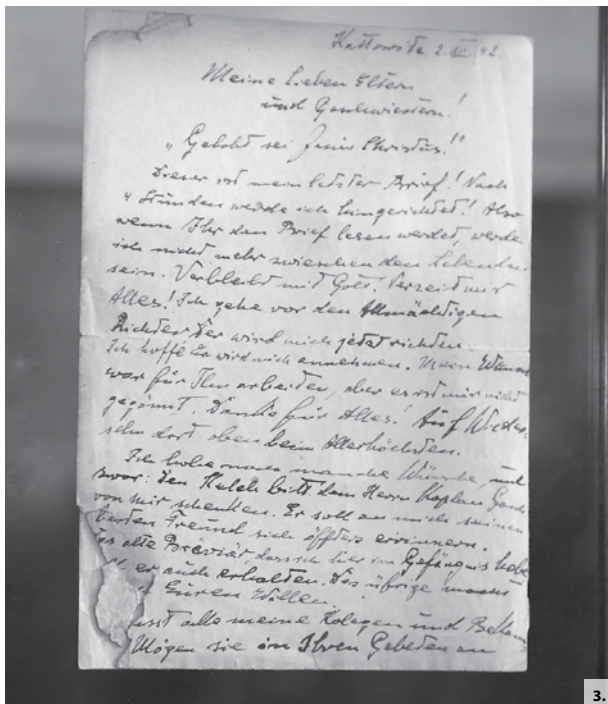 Kattowitz. 2. XII. 42.
Meine lieben Eltern
und Geschwistern!
„Gelobt sei Jesus Christus!"
Dieser ist mein letzter Brief! Nach
4 Stunden werde ich hingerichtet! Also
wenn Ihr den Brief lesen werdet, werde
ich nicht mehr zwieschen den Lebenden
sein. Verbleibt mit Gott. Verzeit mir
Alles! Ich gehe vor den Allmächtigen
Richter der wird mich jetzt richten.
Ich hoffe Er wird mich annehmen. Mein Wunsch
war für Ihm arbeiten, aber es ist mir nicht
gegönnt. Danke für Alles! Auf Wieder-
sehn dort oben beim Allerhöchsten.
Ich habe noch manche Wünsche, und
zwar: den Kelch bitt dem Herrn Kaplan
von mir schenken. Er soll an mich seinen
besten Freund sich öffters erinnern.
alte Breviär, das ich hier im Gefängnis habe
er auch erhalten. Das übrige
Euren Willen.
alle meine Kolegen und
Mögen sie in Ihren Gebeten an
3.